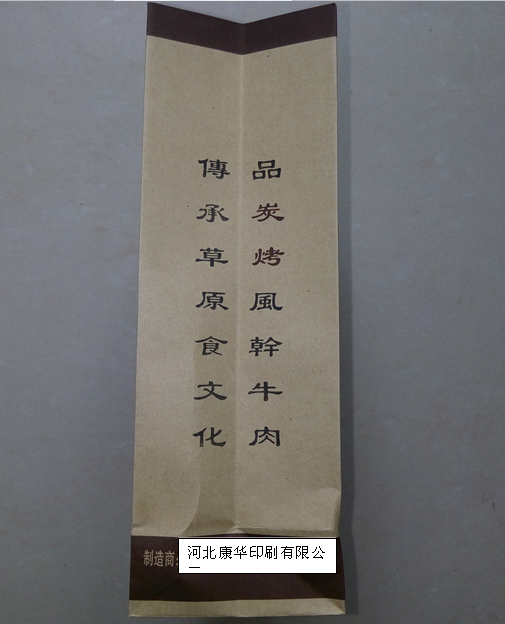 品炭烤風幹牛肉
傳承草原食文化
制造商:
河北康华印刷有限公